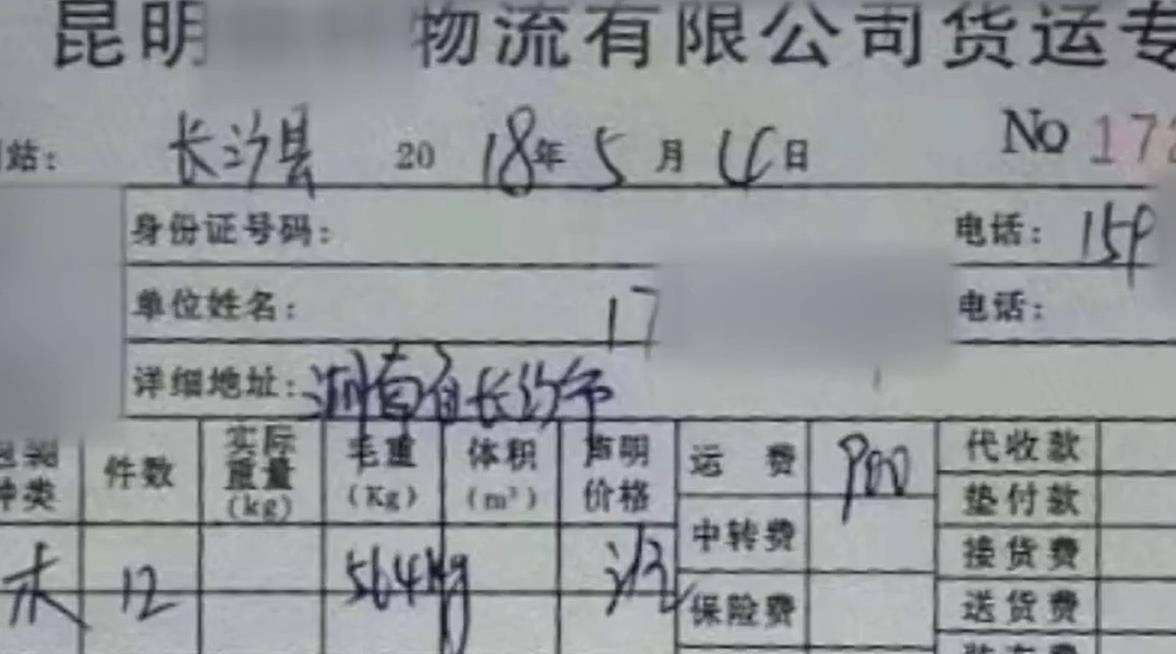 昆明 物流有限公司货运专
站: 长沙县 2018年5月4日 No 172
身份证号码: 电话: 159
单位姓名: 17 电话:
详细地址: 湖南省长沙市
包装种类 件数 实际重量(kg) 毛重(Kg) 体积(m³) 声明价格 运费 900 代收款
垫付款
木 12 564kg 中转费 接货费
保险费 送货费